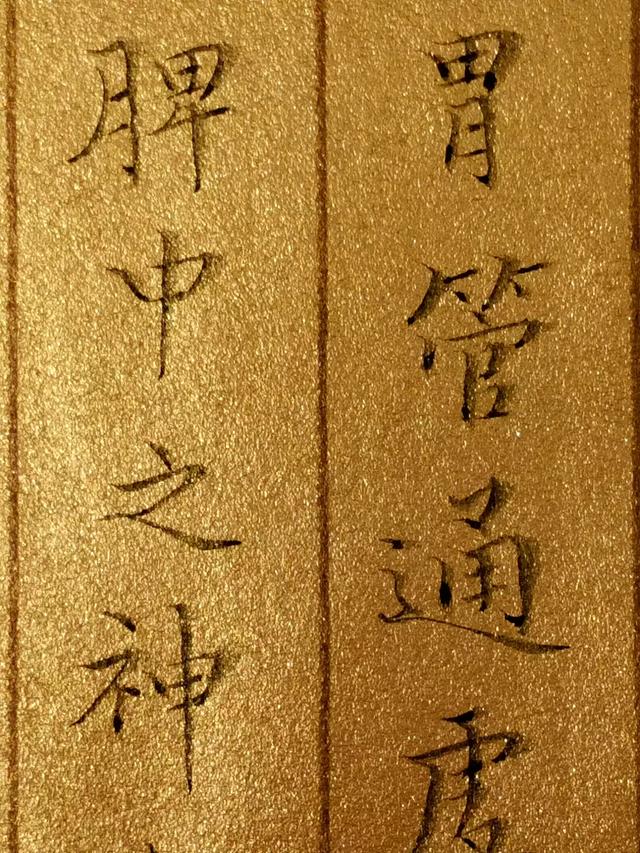 胃管通
脾中之神